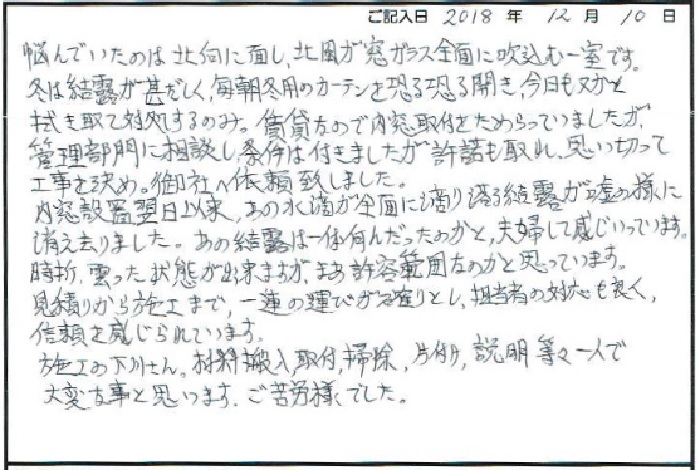 ご記入日 2018 年 12 月 10 日
悩んでいたのは北向に面し、北風が窓ガラス全面に吹込む一室です。
冬は結露が甚だしく、毎朝冬用のカーテンを恐る恐る開き、今日も又かと
拭き取て対処するのみ。賃貸なので内窓取付をためらっていましたが、
管理部門に相談し条件は付きましたが許諾も取れ、思い切って
工事を決め。御社へ依頼致しました。
内窓設置翌日以来、あの水滴が全面に滴り滞る結露が嘘の様に
消え去りました。あの結露は一体何んだったのかと、夫婦して感じいっています。
時折、曇った状態が出来ますが、まあ許容範囲なのかと思っています。
見積りから施工まで、一連の運びがキッチリとし、担当者の対応も良く、
信頼を感じられています。
施工の下川さん。材料搬入、取付、掃除、片付け、説明等々一人で
大変な事と思います。ご苦労様でした。